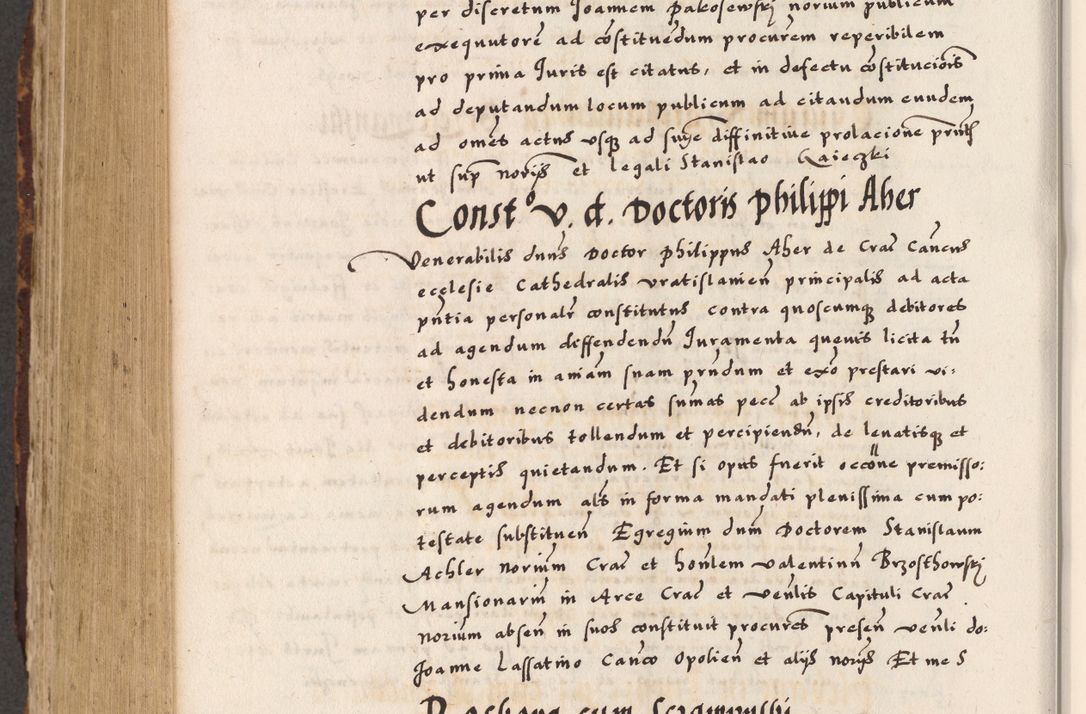 per discretum Joannem Pakosewsky norium publicum
exequutorē ad cōstituēdum procurēm reperibilem
pro prima Juris est citatus, et in defectu cōstitucioīs
ad deputandum locum publicum ad citandum eundem
ad omēs actus vsq ad diffinitiue prolacione
ut sup et legali Stanislao
Constᵒ v. d. Doctoris Philippi Aher
Venerabilis dnūs Doctor Philippus Aher de Crac̄ Cancūs
ecclesie Cathedralis Vratislauien̄ principalis ad acta
pn̄tia personalr̄ constitutus contra quoscumq debitores
ad agendum deffendendū Juramenta queuis licita tn̄
et honesta in aniām suam prn̄dum et exō prestari vi:
dendum necnon certas sum̄as pecc̄ ab ipsis creditoribus
et debitoribus tollendum et percipiendū, de leuatisq et
perceptis quietandum. Et si opus fuerit occōne premisso:
rum agendum als̄ in forma mandati plenissima cum po:
testate substituen̄ Egregium dnm̄ Doctorem Stanislaum
Achler norium Crac̄ et honlem Valentinū Brzosthowsky
Mansionariū in Arce Crac̄ et Venlis Capituli Crac̄
norium absen̄ in suos constituit procures̄ presen̄ venli do:
Joanne Lassatino Canco Opolien̄ et alijs norijs Et me S